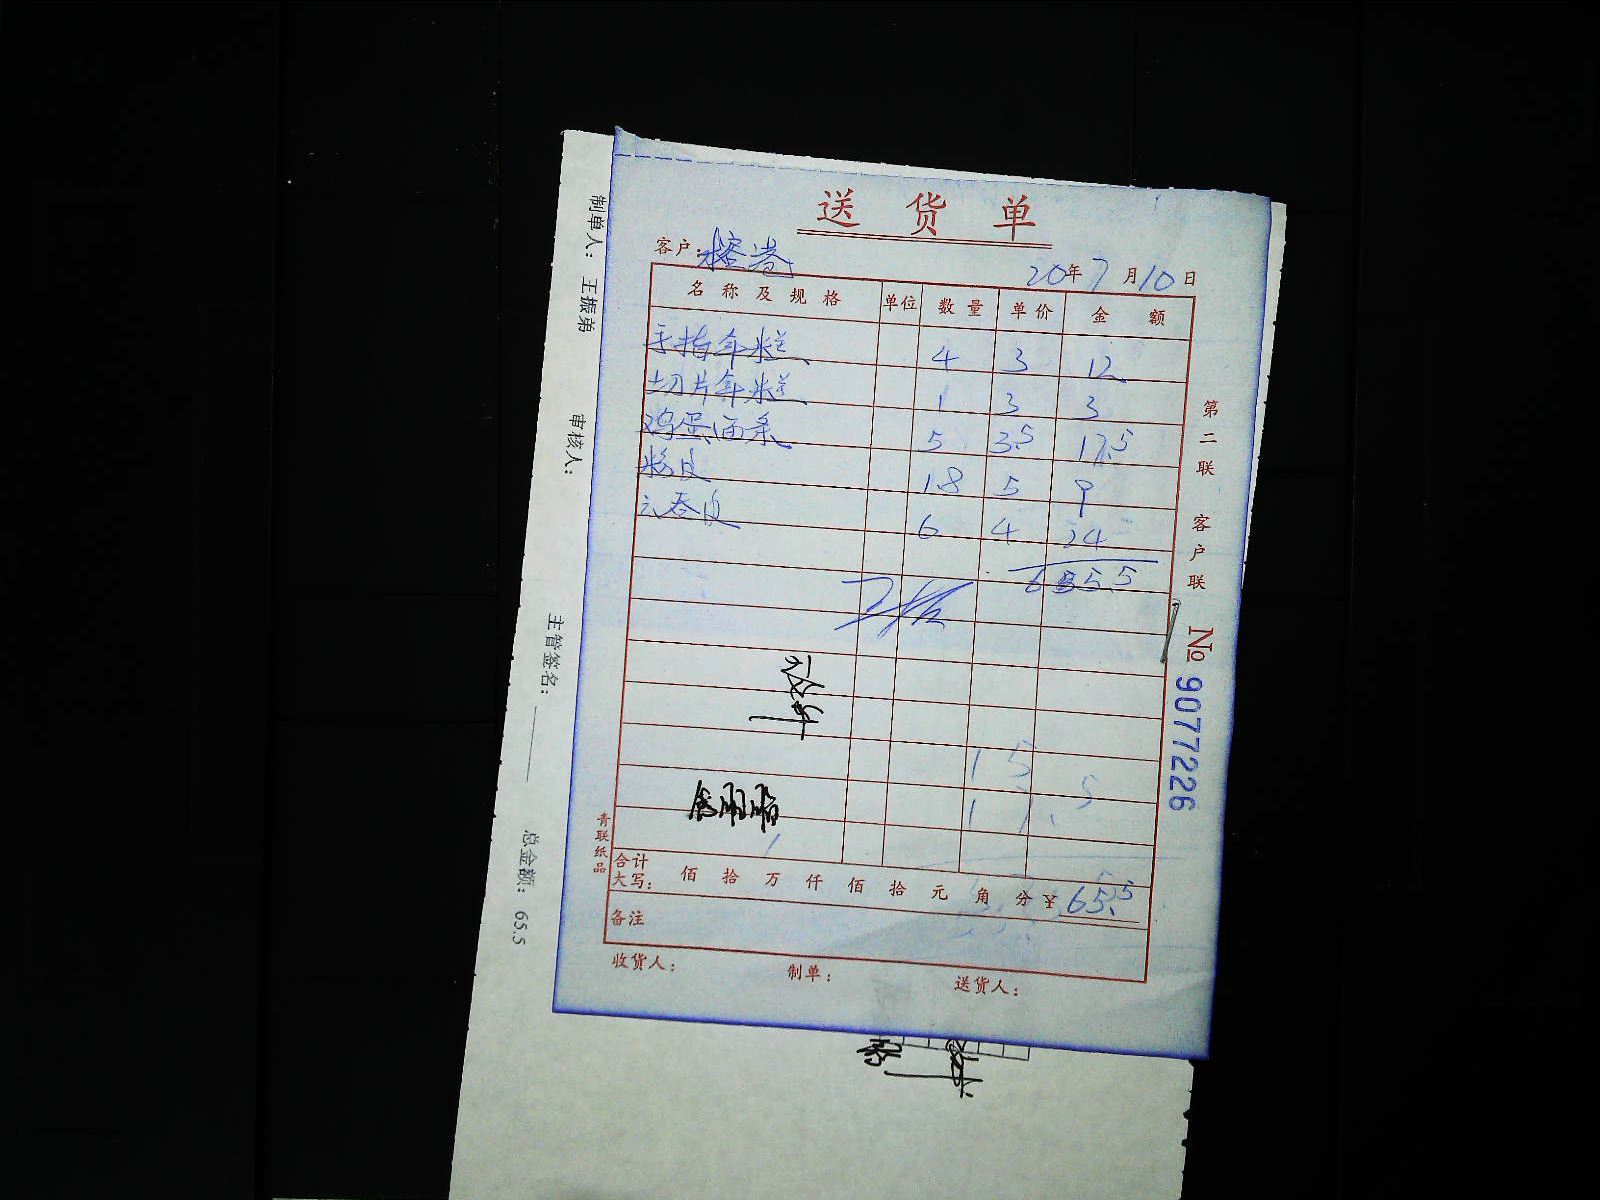 送货单
客户:
20年7月10日
名称及规格 单位 数量 单价 金额
手指年糕 4 3 12
切片年糕 1 3 3
鸡蛋面条 5 3.5 17.5
皮 1.8 5 9
云吞皮 6 4 24
65.5
合计
大写: 佰拾万仟佰拾元角分 ¥65.5
备注
收货人: 制单: 送货人:
第二联 客户联
No 9077226
青联纸品
制单人: 王振弟 审核人: 主管签名: 总金额: 65.5